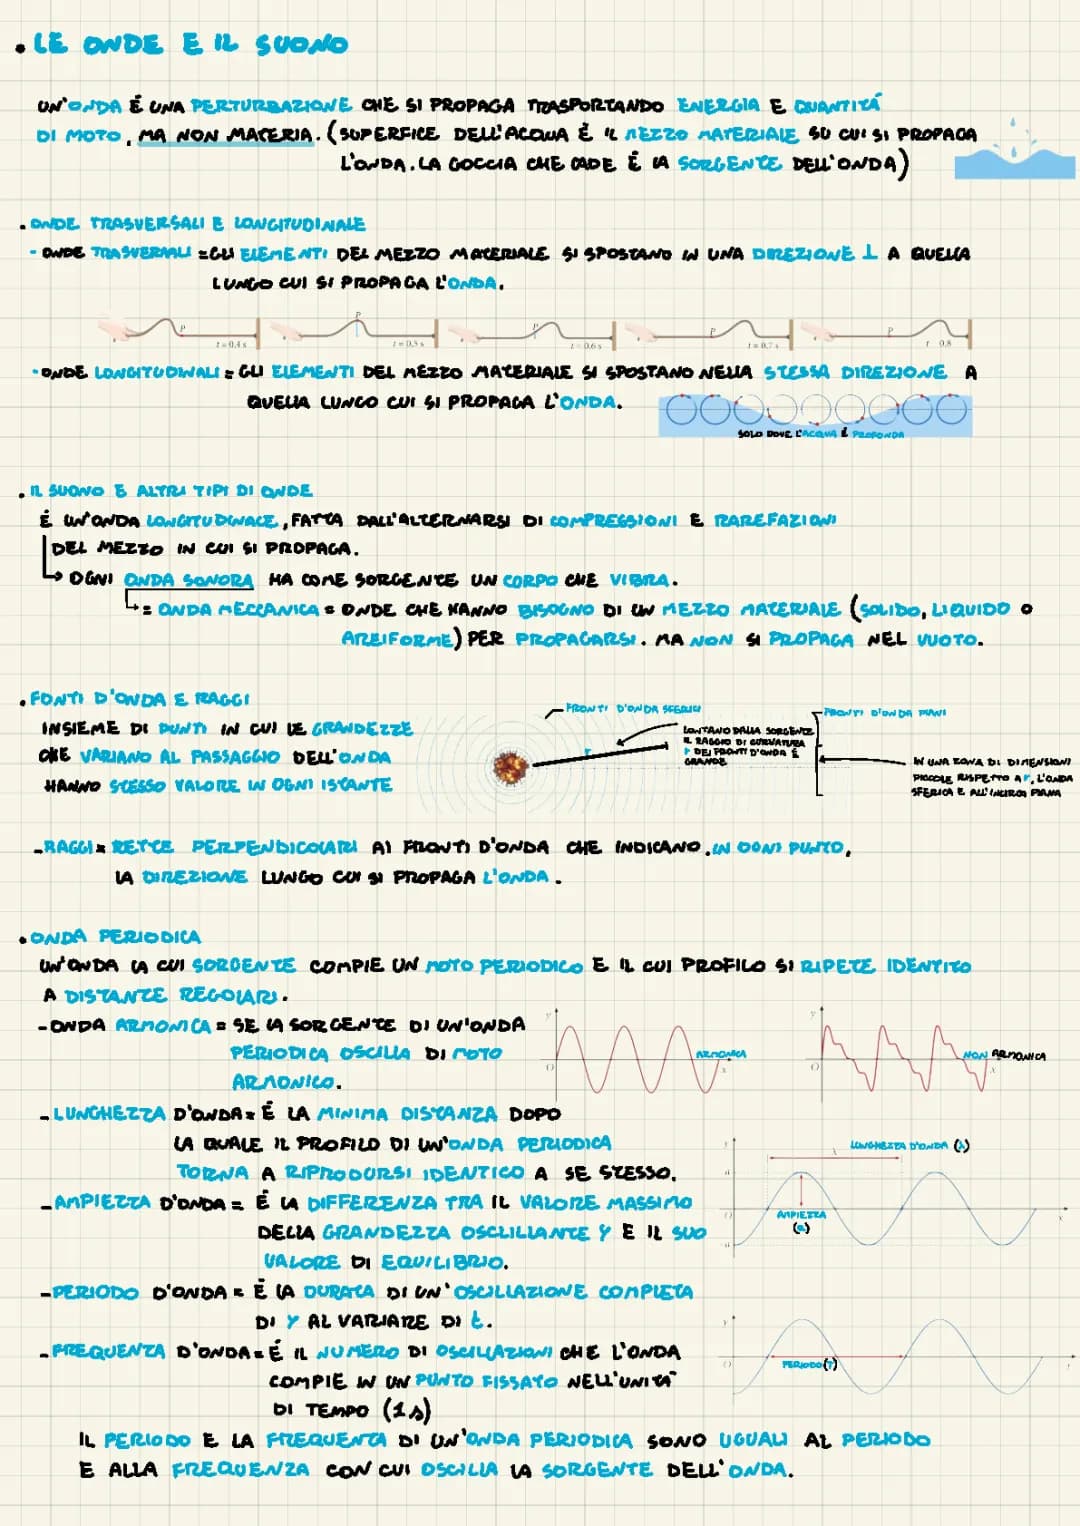 • LE ONDE E IL SUONO
UN'ONDA É UNA PERTURBAZIONE CHE SI PROPAGA TRASPORTANDO ENERGIA E QUANTITÁ
DI MOTO, MA NON MATERIA. (SUPERFICE DELL'ACQUA È IL MEZZO MATERIALE SU CUI SI PROPAGA
L'ONDA. LA GOCCIA CHE CADE É LA SORGENTE DELL'ONDA)
• ONDE TRASVERSALI E LONGITUDINALE
- ONDE TRASVERSALI = GLI ELEMENTI DEL MEZZO MATERIALE SI SPOSTANO IN UNA DIREZIONE ⊥ A QUELLA
LUNGO CUI SI PROPAGA L'ONDA.
P P P P P
t = 0,4 s t = 0,5 s t = 0,6 s t = 0,7 s t 0,8
- ONDE LONGITUDINALI = GLI ELEMENTI DEL MEZZO MATERIALE SI SPOSTANO NELLA STESSA DIREZIONE A
QUELLA LUNGO CUI SI PROPAGA L'ONDA.
SOLO DOVE L'ACQUA É PROFONDA
• IL SUONO E ALTRI TIPI DI ONDE
É UN'ONDA LONGITUDINALE, FATTA DALL'ALTERNARSI DI COMPRESSIONI E RAREFAZIONI
DEL MEZZO IN CUI SI PROPAGA.
↳ OGNI ONDA SONORA HA COME SORGENTE UN CORPO CHE VIBRA.
↳ = ONDA MECCANICA = ONDE CHE HANNO BISOGNO DI UN MEZZO MATERIALE (SOLIDO, LIQUIDO O
AREIFORME) PER PROPAGARSI. MA NON SI PROPAGA NEL VUOTO.
• FONTI D'ONDA E RAGGI
INSIEME DI PUNTI IN CUI LE GRANDEZZE
CHE VARIANO AL PASSAGGIO DELL'ONDA
HANNO STESSO VALORE IN OGNI ISTANTE
FRONTI D'ONDA SFERICI
r
LONTANO DALLA SORGENTE
IL RAGGIO DI CURVATURA
r DEI FRONTI D'ONDA É
GRANDE
FRONTI D'ONDA PIANI
IN UNA ZONA DI DIMENSIONI
PICCOLE RISPETTO A r, L'ONDA
SFERICA E ALL'INCIRCA PIANA
- RAGGI = RETTE PERPENDICOLARI AI FRONTI D'ONDA CHE INDICANO, IN OGNI PUNTO,
LA DIREZIONE LUNGO CUI SI PROPAGA L'ONDA.
• ONDA PERIODICA
UN'ONDA LA CUI SORGENTE COMPIE UN MOTO PERIODICO E IL CUI PROFILO SI RIPETE IDENTITO
A DISTANZE REGOLARI.
- ONDA ARMONICA = SE LA SORGENTE DI UN'ONDA
PERIODICA OSCILLA DI MOTO
ARMONICO.
y
O
ARMONICA
x
y
O
NON ARMONICA
x
- LUNGHEZZA D'ONDA = É LA MINIMA DISTANZA DOPO
LA QUALE IL PROFILO DI UN'ONDA PERIODICA
TORNA A RIPRODURSI IDENTICO A SE STESSO.
- AMPIEZZA D'ONDA = É LA DIFFERENZA TRA IL VALORE MASSIMO
DELLA GRANDEZZA OSCILLANTE Y E IL SUO
VALORE DI EQUILIBRIO.
LUNGHEZZA D'ONDA (λ)
λ
AMPIEZZA
(a)
- PERIODO D'ONDA = É LA DURATA DI UN'OSCILLAZIONE COMPLETA
DI Y AL VARIARE DI t.
- FREQUENZA D'ONDA = É IL NUMERO DI OSCILLAZIONI CHE L'ONDA
COMPIE IN UN PUNTO FISSATO NELL'UNITÁ
DI TEMPO (1 s)
PERIODO (T)
IL PERIODO E LA FREQUENZA DI UN'ONDA PERIODICA SONO UGUALI AL PERIODO
E ALLA FREQUENZA CON CUI OSCILLA LA SORGENTE DELL'ONDA.